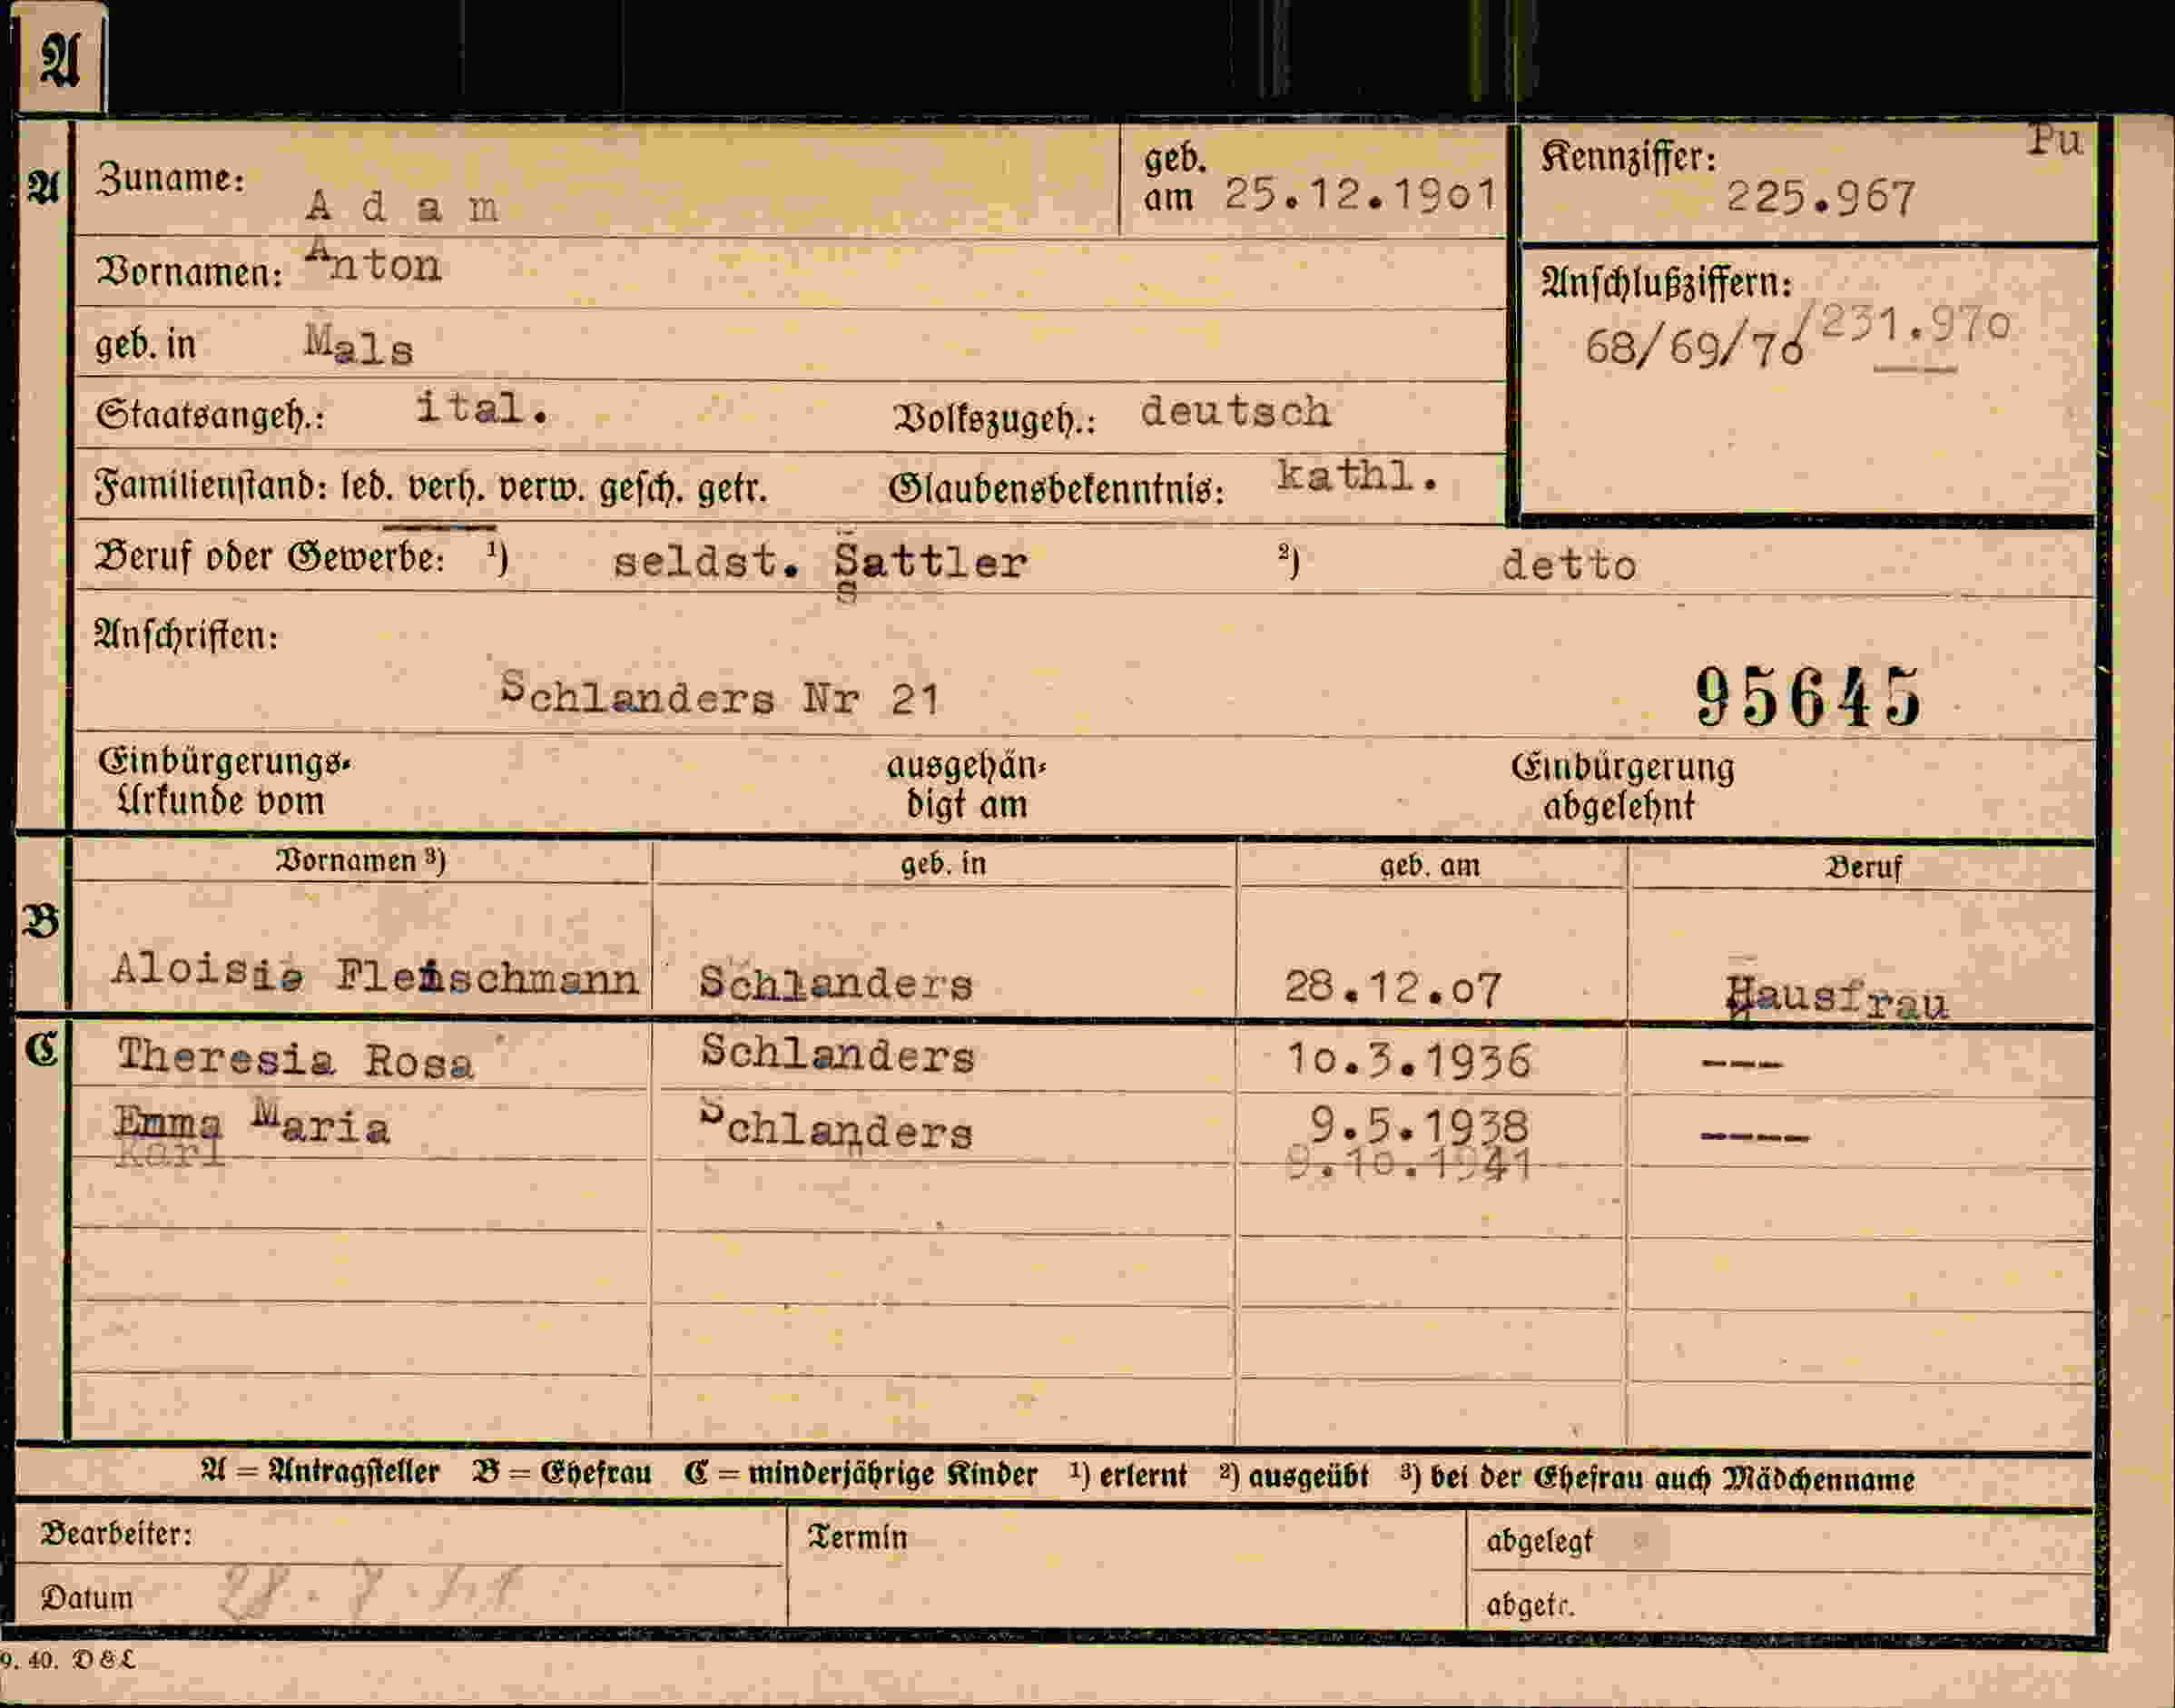 A
A Zuname: Adam geb. am 25.12.1901
Kennziffer: 225.967 Pu
Vornamen: Anton
Anschlußziffern: 68/69/70/231.970
geb. in Mals
Staatsangeh.: ital. Volkszugeh.: deutsch
Familienstand: led. verh. verw. gesch. getr. Glaubensbekenntnis: kathl.
Beruf oder Gewerbe: ¹) seldst. Sattler ²) detto
Anschriften:
Schlanders Nr 21 95645
Einbürgerungs- ausgehän- Einbürgerung
Urkunde vom digt am abgelehnt
Vornamen ³) geb. in geb. am Beruf
B Aloisia Fleischmann Schlanders 28.12.07 Hausfrau
C Theresia Rosa Schlanders 10.3.1936 ---
Emma Maria Schlanders 9.5.1938 ----
Karl 9.10.1941
A = Antragsteller B = Ehefrau C = minderjährige Kinder ¹) erlernt ²) ausgeübt ³) bei der Ehefrau auch Mädchenname
Bearbeiter: Termin abgelegt
Datum abgetr.
9. 40. D & L